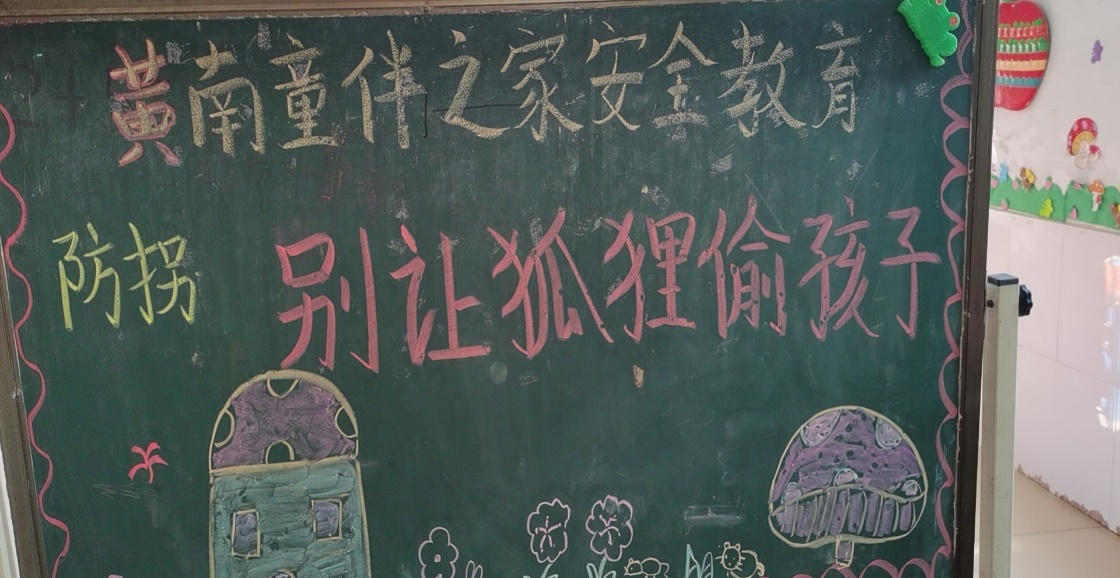 黄南童伴之家安全教育
防拐 别让狐狸偷孩子